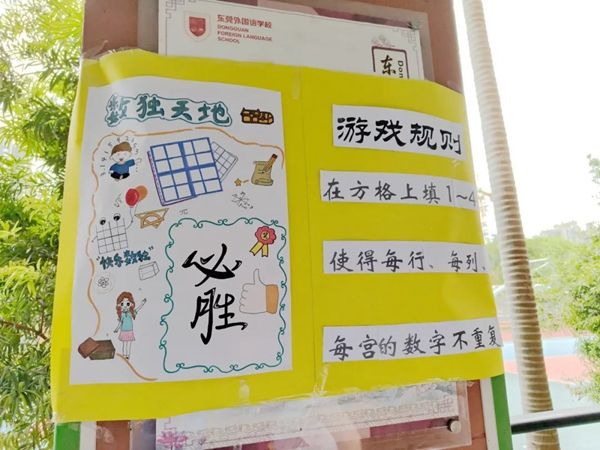 东莞外国语学校
DONGGUAN
FOREIGN LANGUAGE
SCHOOL
东
Don
数独天地
"快乐数独"
必
胜
游戏规则
在方格上填1~4
使得每行、每列、
每宫的数字不重复